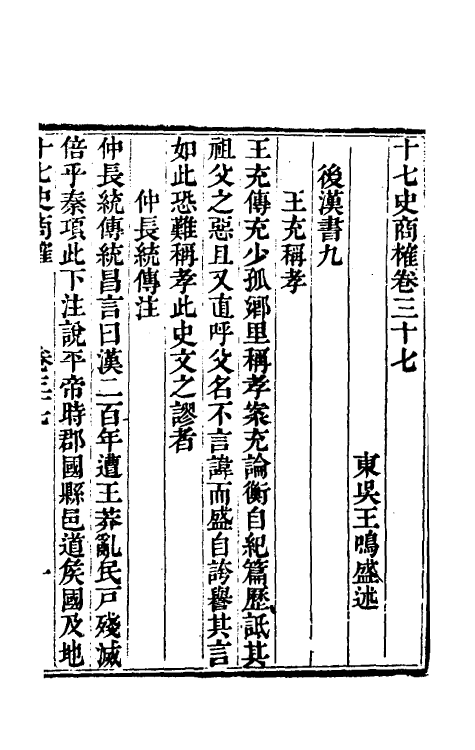 十七史商榷卷三十七
東吳王鳴盛述
後漢書九
王充稱孝
王充傳充少孤鄉里稱孝案充論衡自紀篇歷詆其
祖父之惡且又直呼父名不言諱而盛自誇譽其言
如此恐難稱孝此史文之謬者
仲長統傳注
仲長統傳統昌言曰漢二百年遭王莽亂民戸殘滅
倍乎秦項此下注說平帝時郡國縣邑道矦國及地
十七史商榷 卷三十七 一